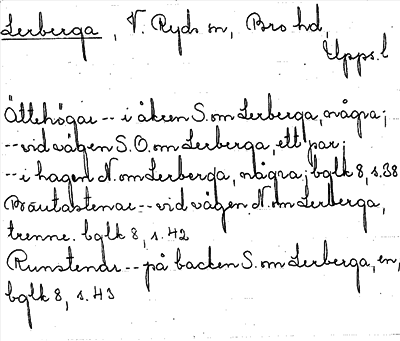 Lerberga, V. Ryds sn, Bro hd,
Upps. l
Ättehögar -- i åkern S. om Lerberga, några;
-- vid vägen S.O. om Lerberga, ett par;
-- i hagen N. om Lerberga, några; bglk 8, s. 38
Brautastenar -- vid vägen N. om Lerberga,
trenne. bglk 8, s. 42
Runstenar -- på backen S. om Lerberga, en,
bglk 8, s. 43